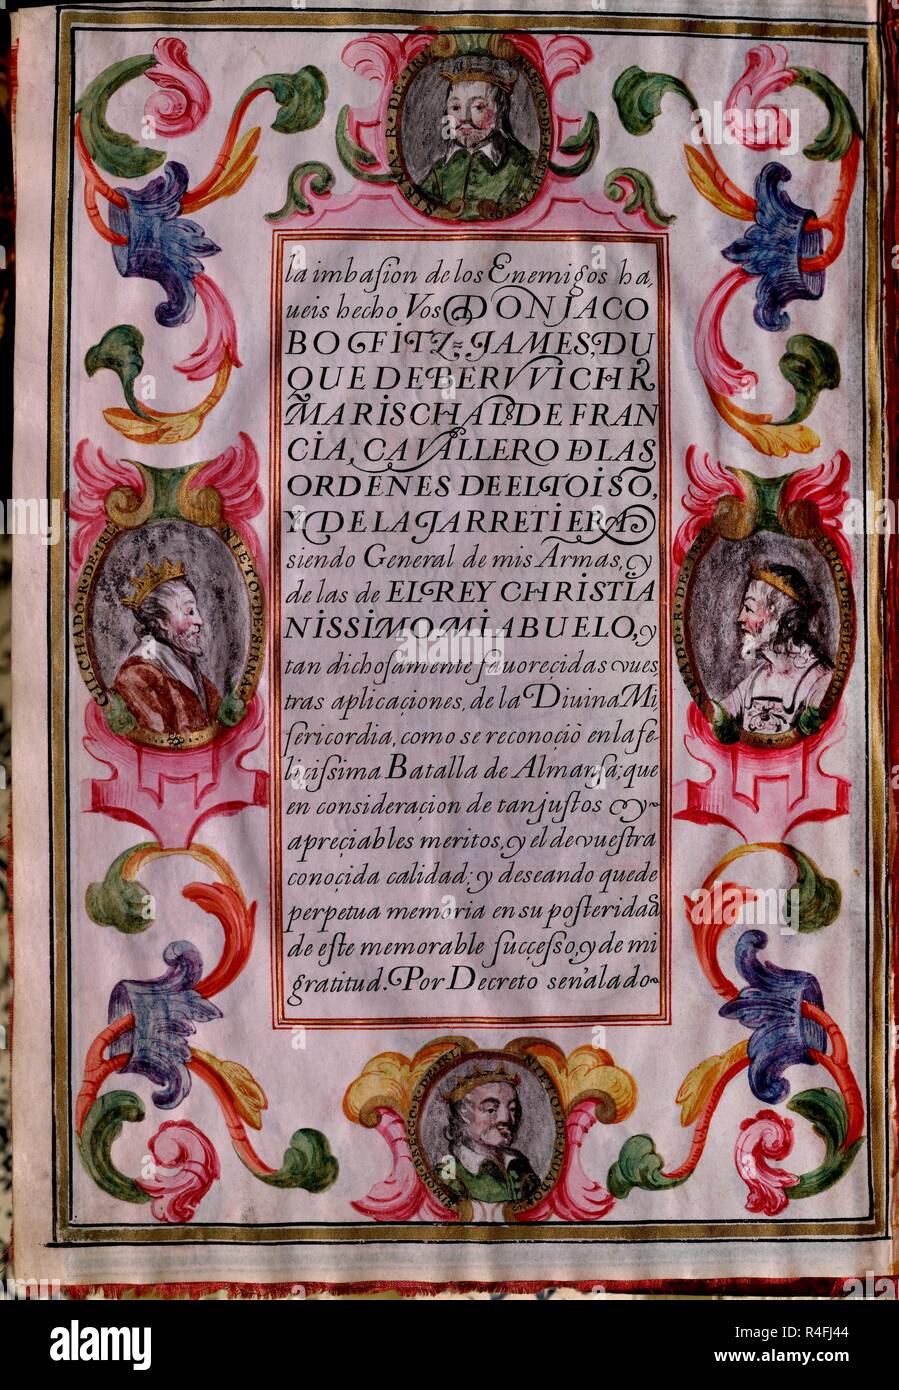 la imbasion de los Enemigos ha,
ueis hecho Vos DON JACO
BO FITZ=JAMES, DU
QUE DE BERVVICH R
MARISCHAL DE FRAN
CIA, CAVALLERO DLAS
ORDENES DE EL TOISO,
Y DE LA JARRETIERA
siendo General de mis Armas, y
de las de EL REY CHRISTIA
NISSIMO MI ABUELO, y
tan dichosamente fauorecidas vues,
tras aplicaçiones, de la Diuina Mi,
sericordia, como se reconoçiò en la fe-
liçissima Batalla de Almansa; que
en consideraçion de tan justos y
apreçiables meritos, y el de vuestra
conoçida calidad; y deseando quede
perpetua memoria en su posteridad
de este memorable suççesso, y de mi
gratitud. Por Decreto señalado
GILCHADO·R·DE·IRL
NIETO·DE·SIRNA
SIMON·BRECC·R·DE·IRLA
NIETO·DE
alamy
Image ID: R4FJ44
www.alamy.com